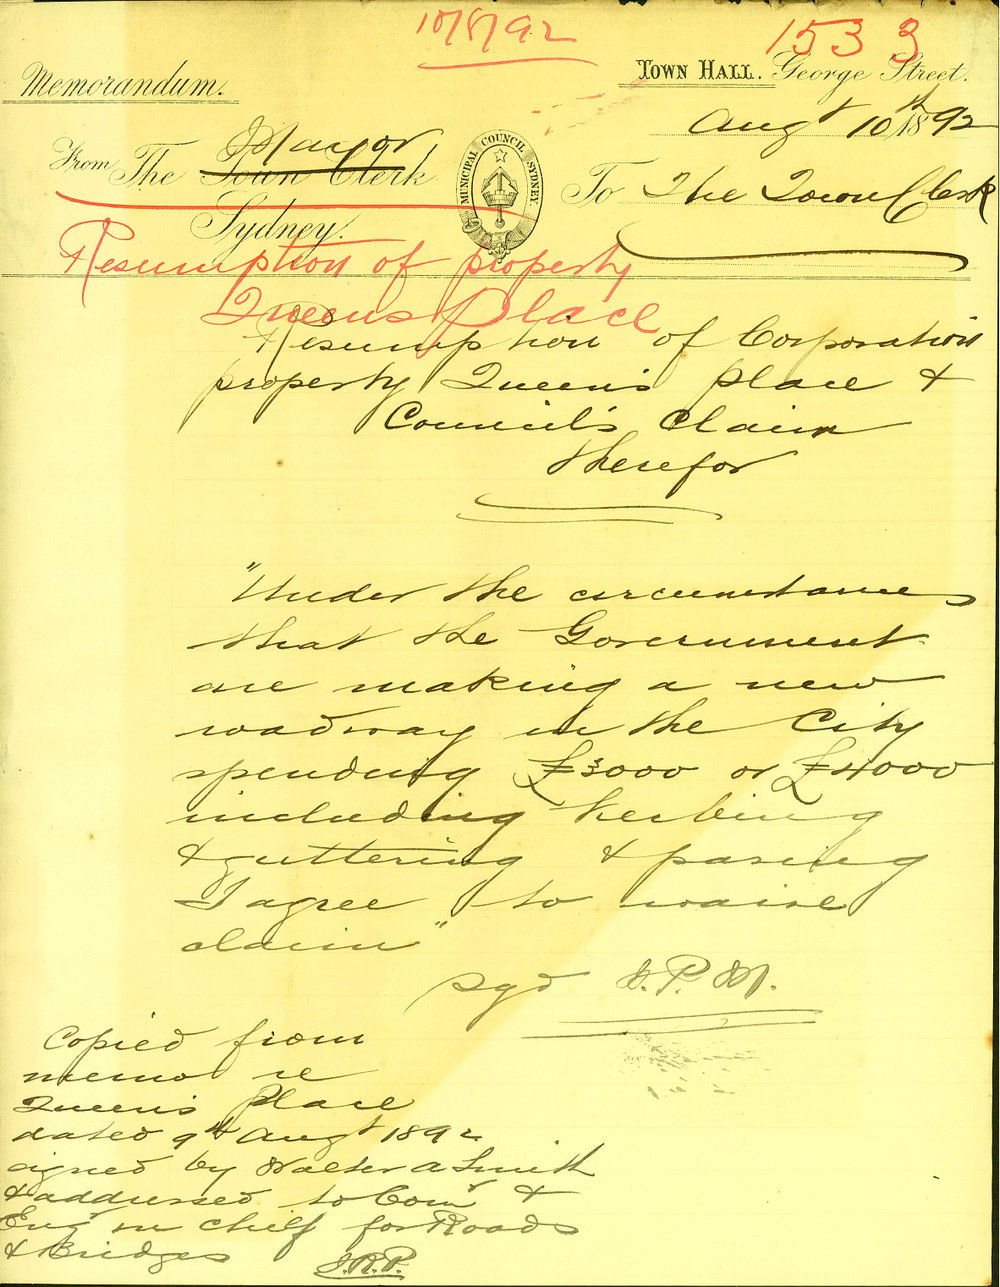 10/8/92
1533
Memorandum.
TOWN HALL. George Street.
Augt 10th 1892
From The Town Clerk
Mayor
Sydney.
MUNICIPAL COUNCIL SYDNEY.
To The Town Clerk
Resumption of property
Queens place
Resumption of Corporation
property Queen's place &
Council's claim
therefor
"Under the circumstances
that the Government
are making a new
roadway in the City
spending £3000 or £4000
including kerbing
& guttering & paving
I agree to waive
claim"
sgd J.P.M.
Copied from
memo re
Queen's Place
dated 9th Augt 1892
signed by Walter A Smith
& addressed to Comr &
Engr in chief for Roads
& Bridges J.R.P.